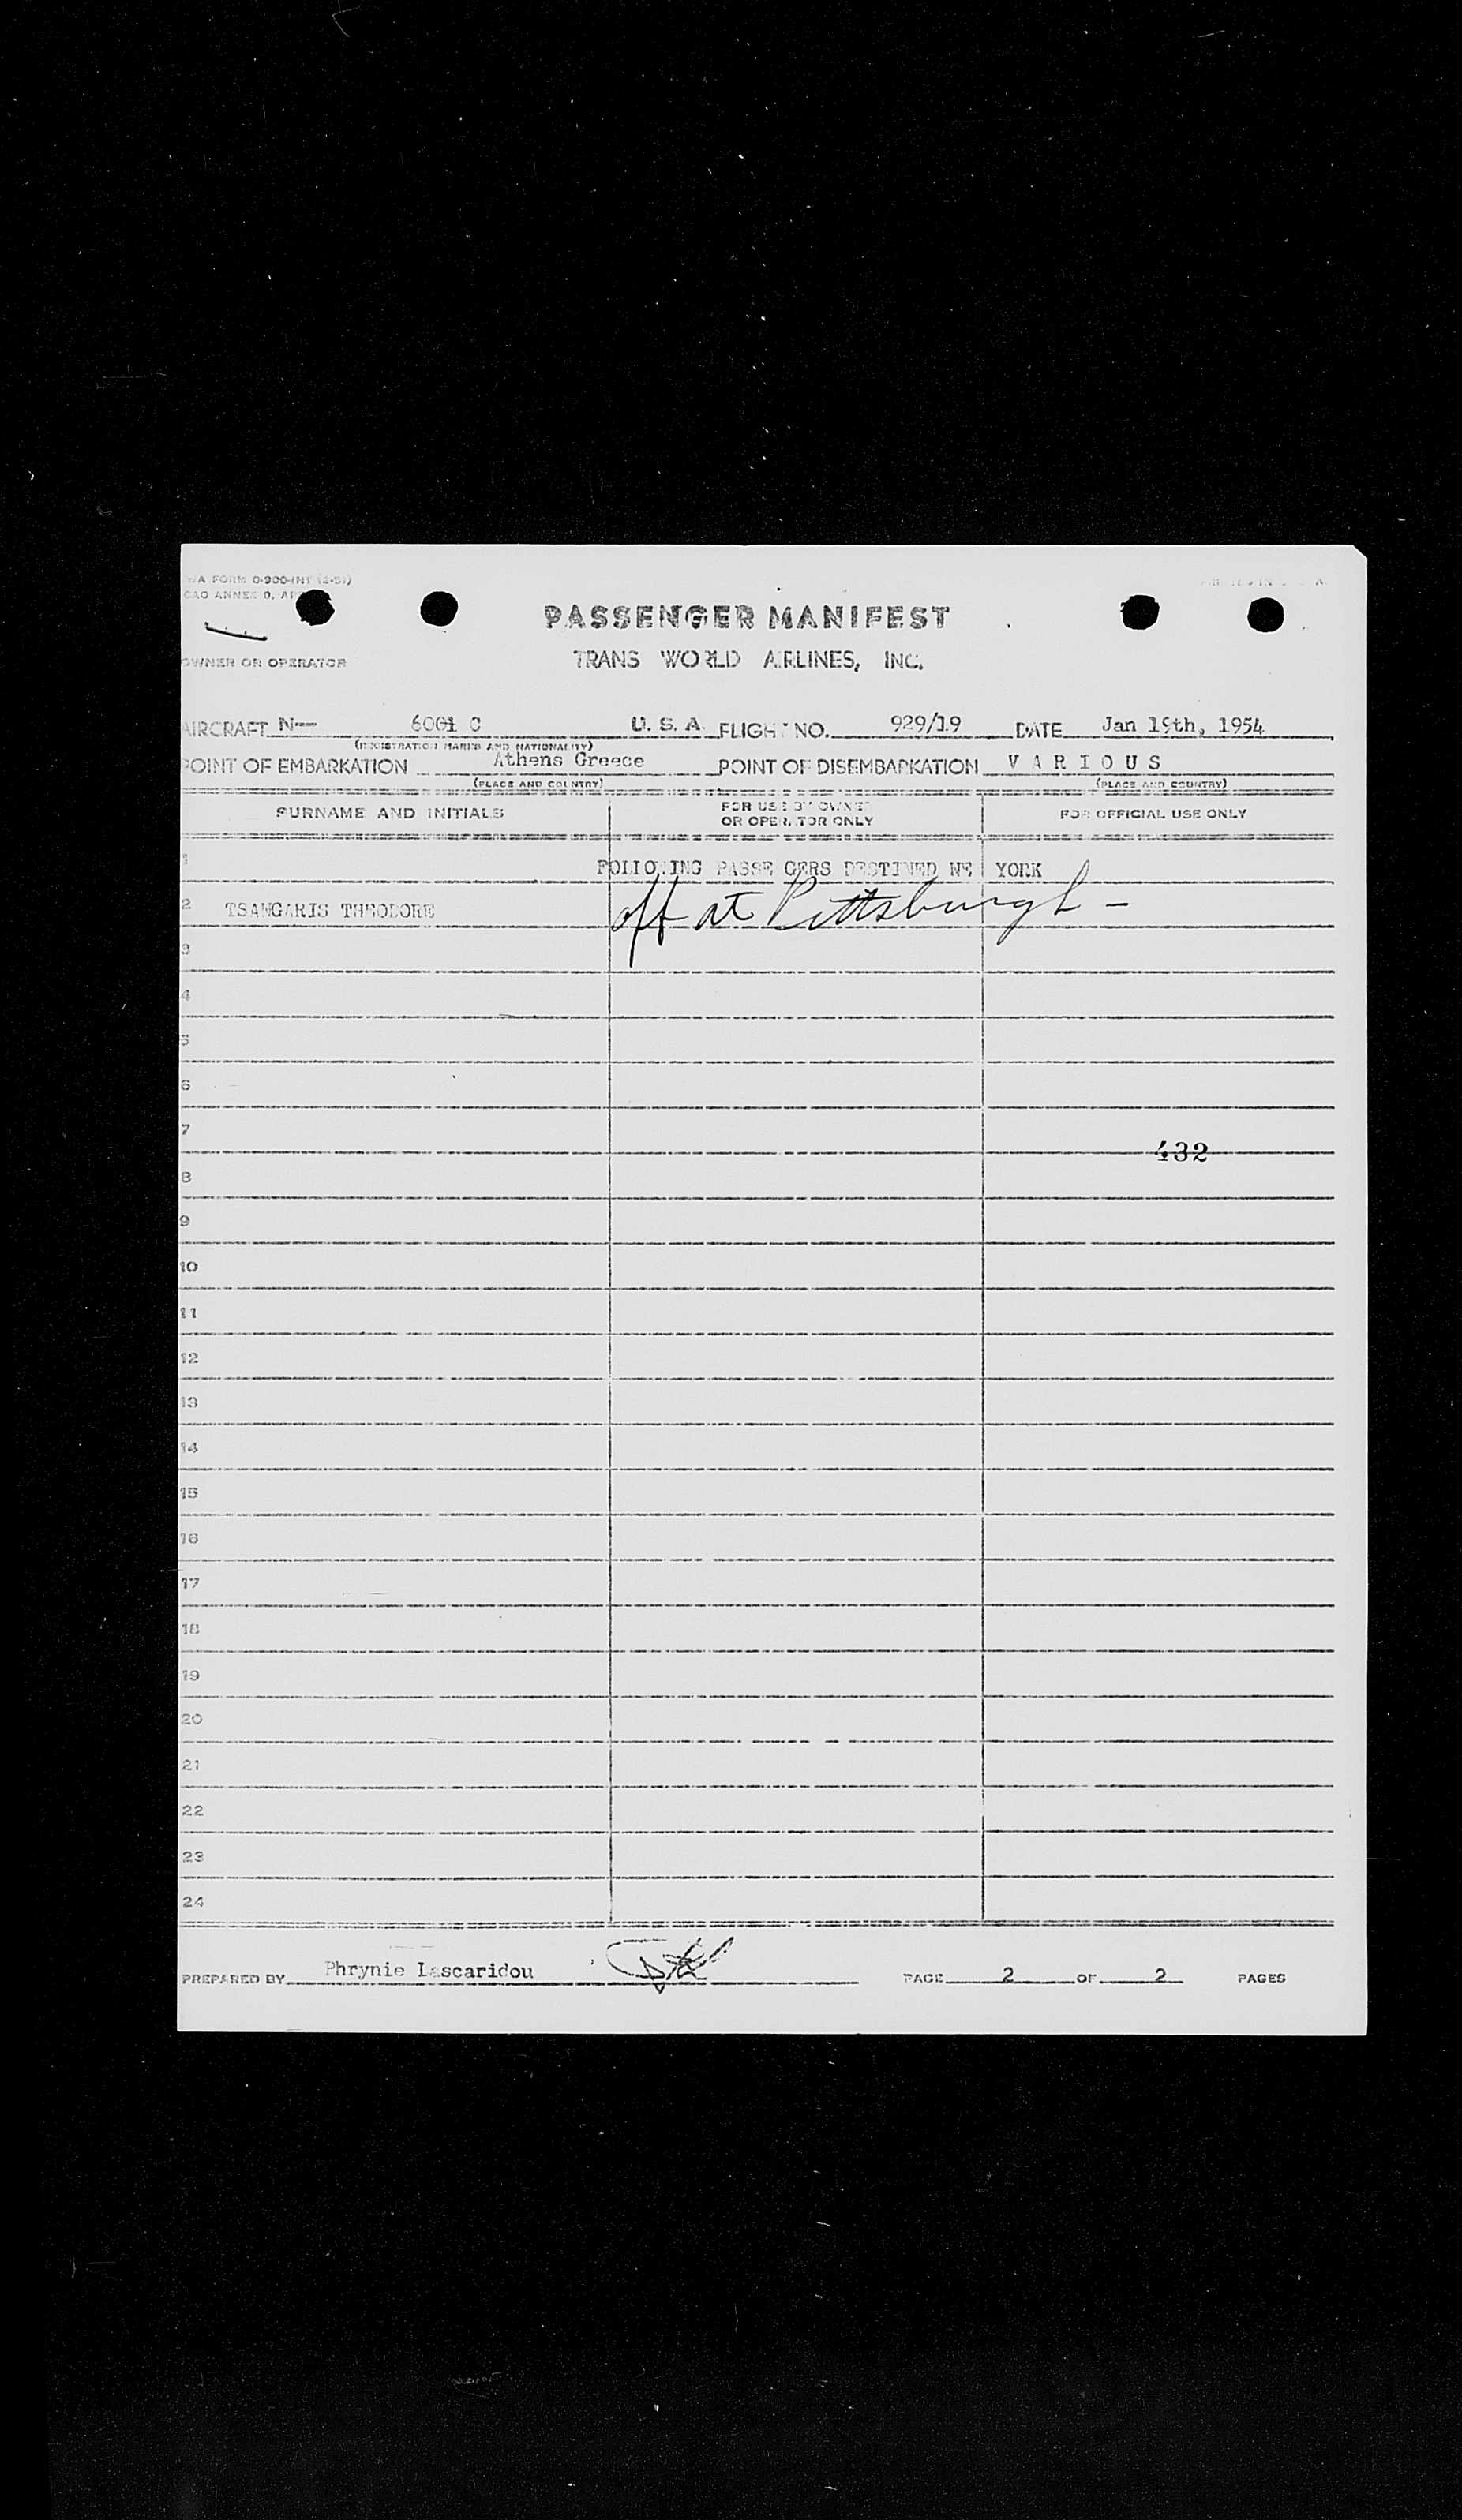 WA FORM O-900-INT (2-51)
CAO ANNEX 9, AP
PASSENGER MANIFEST
OWNER OR OPERATOR TRANS WORLD AIRLINES, INC.
AIRCRAFT N— 6001 C U. S. A. FLIGHT NO. 929/19 DATE Jan 19th, 1954
(REGISTRATION MARKS AND NATIONALITY)
POINT OF EMBARKATION Athens Greece POINT OF DISEMBARKATION V A R I O U S
(PLACE AND COUNTRY) (PLACE AND COUNTRY)
SURNAME AND INITIALS FOR USE BY OWNER OR OPERATOR ONLY FOR OFFICIAL USE ONLY
1 FOLLOWING PASSENGERS DESTINED NEW YORK
2 TSANGARIS THEODORE off at Pittsburgh -
3
4
5
6
7
432
8
9
10
11
12
13
14
15
16
17
18
19
20
21
22
23
24
PREPARED BY Phrynie Lascaridou PAGE 2 OF 2 PAGES